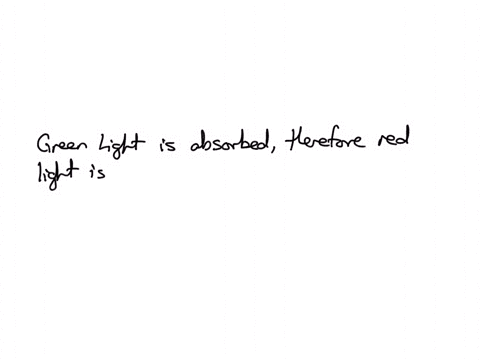 Green Light is absorbed, therefore red
light is